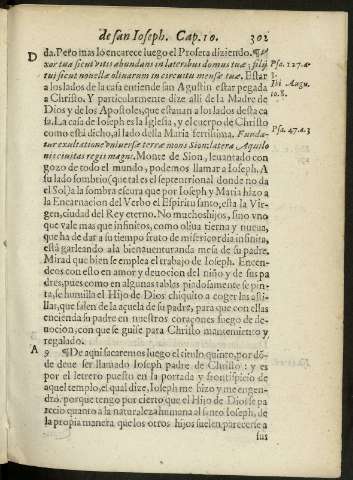 de san Ioseph. Cap. 10. 302
D da. Pero mas lo encarece luego el Profeta diziendo. Vxor tua sicut vitis abundans in lateribus domus tuæ; filij tui sicut nouellæ oliuarum in circuitu mensæ tuæ. Estar
Psa. 127. a.
a los lados de la casa entiende san Agustin estar pegada
Ibi Augu. to. 8.
a Christo. Y particularmente dize alli de la Madre de
Dios y de los Apostoles, que estauan a los lados desta ca
sa. La casa de Ioseph es la Iglesia, y el cuerpo de Christo
como está dicho, al lado della Maria fertilissima. Funda-
Psa. 47. a. 3
tur exultatione vniuersæ terræ mons Sion: latera Aquilo
nis ciuitas regis magni. Monte de Sion, leuantado con
gozo de todo el mundo, podemos llamar a Ioseph. A
su lado sombrio (que tal es el septentrional donde no da
el Sol) a la sombra escura que por Ioseph y Maria hizo a
la Encarnacion del Verbo el Espiritu santo, esta la Vir-
gen, ciudad del Rey eterno. No muchos hijos, sino vno
que vale mas que infinitos, como oliua tierna y nueua,
que ha de dar a su tiempo fruto de misericordia infinita,
está garleando a la bienauenturanda mesa de su padre.
Mirad que bien se emplea el trabajo de Ioseph. Encen-
deos con esto en amor y deuocion del niño y de sus pa
dres, pues como en algunas tablas piadosamente se pin-
ta, se humilla el Hijo de Dios chiquito a coger las asti-
llas, que salen de la açuela de su padre, para que con ellas
encienda su padre en nuestros coraçones fuego de de-
uocion, con que se guise para Christo mantenimiento y
regalado.
A 9 ¶ De aqui sacaremos luego el titulo quinto, por dõ-
de deue ser llamado Ioseph padre de Christo: y es
por el letrero puesto en la portada y frontispicio de
aquel templo, el qual dize, Ioseph me hizo y me engen-
dró: porque tengo por cierto que el Hijo de Dios se pa
recio quanto a la naturaleza humana al santo Ioseph, de
la propia manera que los otros hijos suelen parecerse a
sus